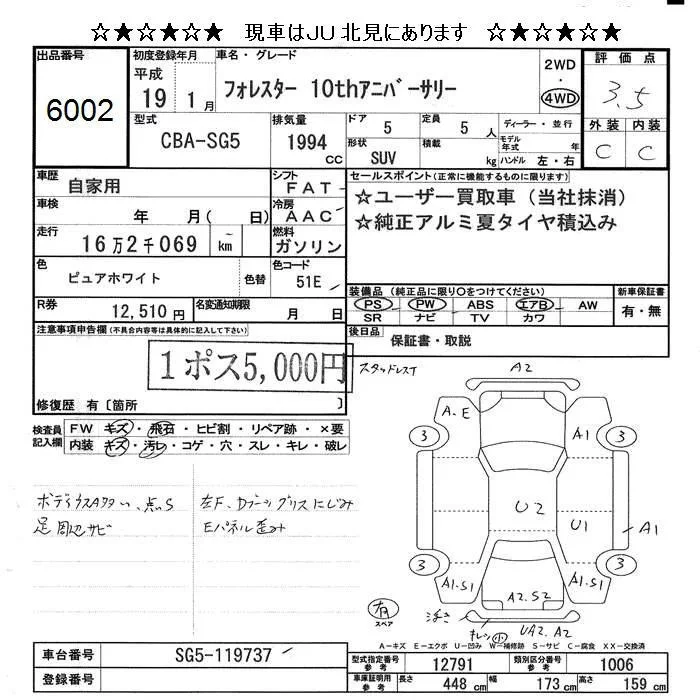 ☆★☆★☆★ 現車はJU北見にあります ☆★☆★☆★
出品番号
6002
初度登録年月
平成
19 1月
車名・グレード
フォレスター 10thアニバーサリー
2WD
・
4WD
評価点
3.5
外装 内装
C C
型式
CBA-SG5
排気量
1994
cc
ドア 5
定員 5人
ディーラー・並行
形状 SUV
積載 kg
モデル年式 年
ハンドル 左・右
車歴 自家用
シフト
FAT
セールスポイント(正常に機能するものに限ります)
☆ユーザー買取車(当社抹消)
☆純正アルミ夏タイヤ積込み
車検 年 月(日)
冷房
AAC
走行 16万2千069 ~km
燃料
ガソリン
色 ピュアホワイト
色替
色コード
51E
装備品(純正品に限り○をつけてください)
PS PW ABS エアB AW
SR ナビ TV カワ
新車保証書
有・無
R券 12,510円
名変通知期限 月 日
後日品 保証書・取説
注意事項申告欄(不具合内容等は具体的に記入して下さい)
1ポス5,000円
修復歴 有〔箇所 〕
検査員記入欄
FW キズ・飛石・ヒビ割・リペア跡・×要
内装 キズ・汚レ・コゲ・穴・スレ・キレ・破レ
スタッドレス
A2
A.E
A1
3
3
U2
U1
A1
3
3
A1.S1
A1.S1
A2.S2
有
スペア
浮き
キレ小
UA2.A2
足周辺サビ
Eパネル歪み
A-キズ E-エクボ U-凹み W-補修跡 S-サビ C-腐食 XX-交換済
車台番号 SG5-119737
登録番号
型式指定番号
参考
12791
類別区分番号
参考
1006
車庫証明用
参考
長さ 448cm
幅 173cm
高さ 159cm